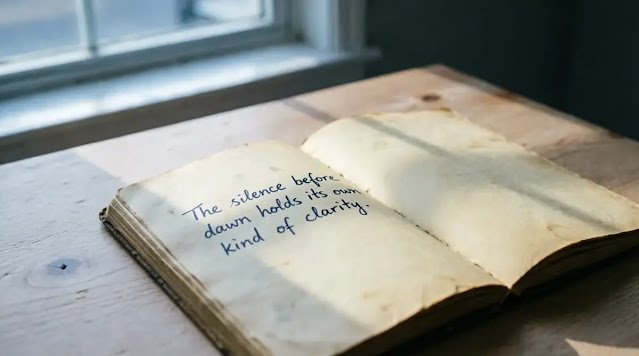 The silence before
dawn holds its own
kind of clarity.